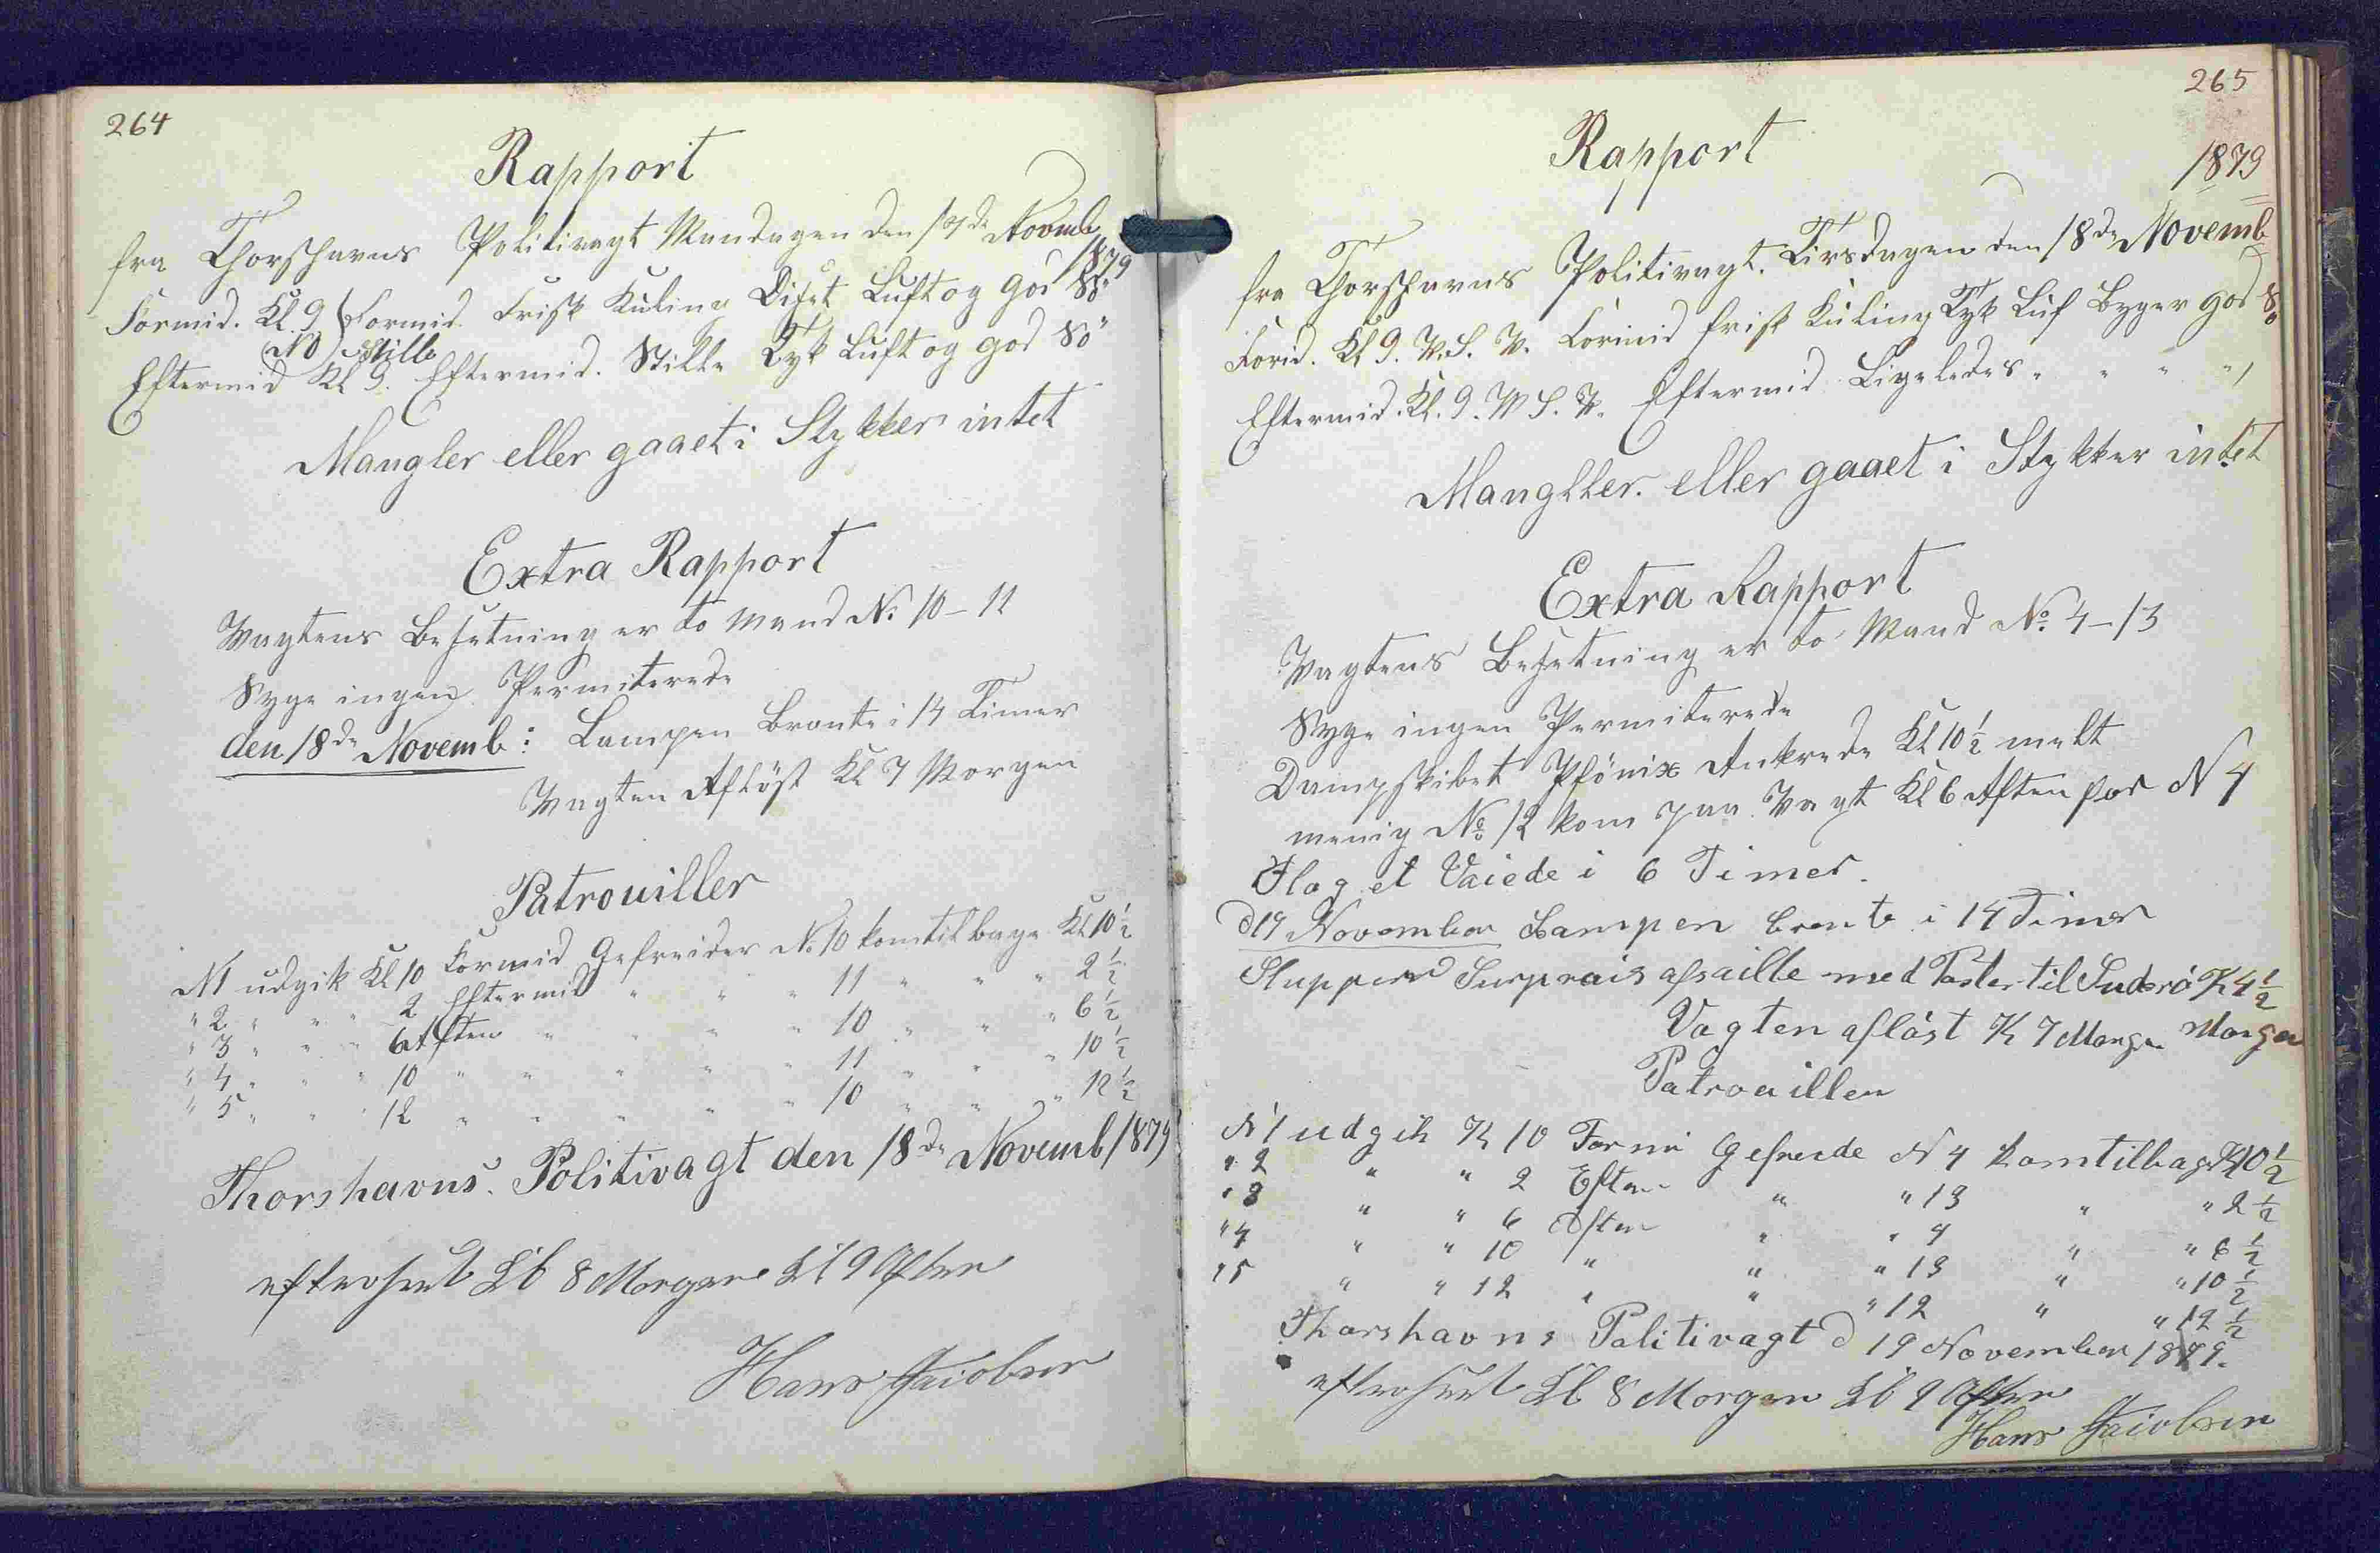 264
Rapport
fra Thorshavns Politivagt Mandagen den 17de Novemb
1879
Formid. Kl. 9 NO Formid. Frisk Kuling Diset Luft og god Sö
Eftermid Kl 9. Stille Eftermid. Stille Tyk Luft og god Sö
Mangler eller gaaet i Stykker intet
Extra Rapport
Vagtens Besetning er to Mand No 10 - 11
Syge ingen Permiterede
den 18de Novemb: Lampen Brente i 14 Timer
Vagten Aflöst Kl 7 Morgen
Patrouiller
N1 udgik Kl 10 Formid Gefreider No 10 kom tilbage Kl 10 1/2
" 2 " " " 2 Eftermid " " " 11 " " " 2 1/2
" 3 " " " 6 Aften " " " 10 " " " 6 1/2
" 4 " " " 10 " " " " " 11 " " " 10 1/2
" 5 " " " 12 " " " " " 10 " " " 12 1/2
Thorshavns. Politivagt den 18de Novemb 1879
efterseet Kl 8 Morgen Kl 9 Aften
Hans Jacobsen
265
Rapport
1879
fra Thorshavns Politivagt. Tirsdagen den 18de Novemb
Formid. Kl 9. V.S.V. Formid frisk Kuling Tyk Luf Byger god Sö
Eftermid. Kl. 9. V S. V. Eftermid Ligeledes " " " "
Mangller. eller gaaet i Stykker intet
Extra Rapport
Vagtens Besetning er to Mand No. 4 - 13
Syge ingen Permiterede
Dampskibet Phönix Ankrede Kl 10 1/2 melt
menig No 12 kom paa Vagt Kl 6 Aften for N 4
Flaget Vaiede i 6 Timer.
d 19 November Lampen brente i 14 Timer
Sluppen Surprais afsaille med Poster til Suderö K 4 1/2
Morgen
Vagten aflöst K 7 Morgen
Patrouiller
N 1 udgik K 10 Formi Gefreide N 4 kom tilbage K 10 1/2
" 2 " " 2 Efterm " " 13 " " 2 1/2
" 3 " " 6 Aften " " 4 " " 6 1/2
" 4 " " 10 " " " 13 " " 10 1/2
" 5 " " 12 " " " 12 " " 12 1/2
Thorshavns Politivagt d 19 November 1879.
efterseet Kl 8 Morgen Kl 9 Aften
Hans Jacobsen